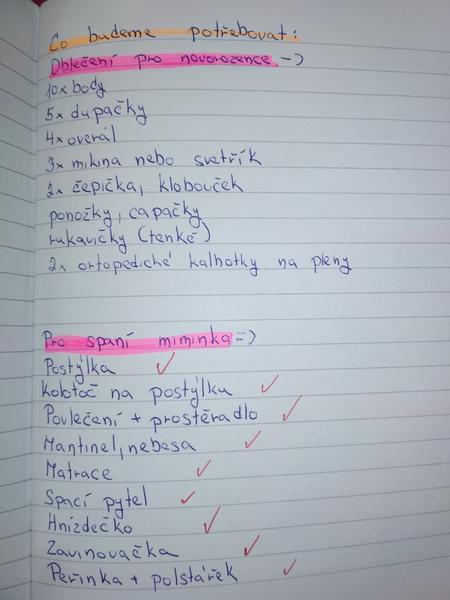 Co budeme potřebovat:
Oblečení pro novorozence ->
10x body
5x dupačky
4x overál
3x mikina nebo svetřík
2x čepička, klobouček
ponožky, capačky
rukavičky (tenké)
2x ortopedické kalhotky na pleny
Pro spaní miminka =>
Postýlka ✓
Kolotoč na postýlku ✓
Povlečení + prostěradlo ✓
Mantinel, nebesa ✓
Matrace ✓
Spací pytel ✓
Hnízdečko ✓
Zavinovačka ✓
Peřinka + polštářek ✓